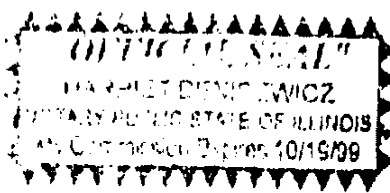 "OFFICIAL SEAL"
NOTARY PUBLIC STATE OF ILLINOIS
My Commission Expires 10/19/99